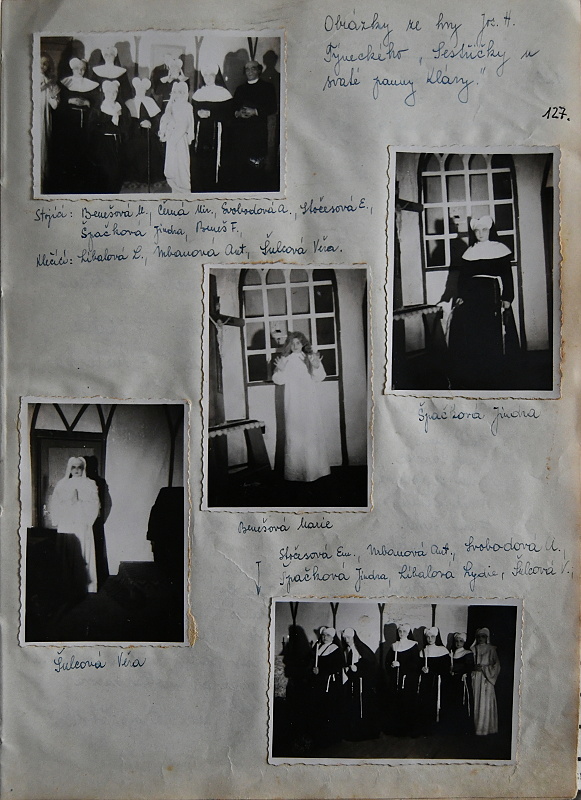 Obrázky ze hry Jos. H.
Týneckého „Sestřičky u
svaté panny Kláry."
127.
Stojící: Benešová M., Černá Mir., Svobodová A., Stočesová E.,
Špačková Jindra, Beneš F.,
Klečící: Líbalová L., Urbanová Ant., Šulcová Věra.
Špačková Jindra
Benešová Marie
Stočesová Em., Urbanová Ant., Svobodová M.,
Špačková Jindra, Líbalová Lydie, Šulcová V.,
Šulcová Věra